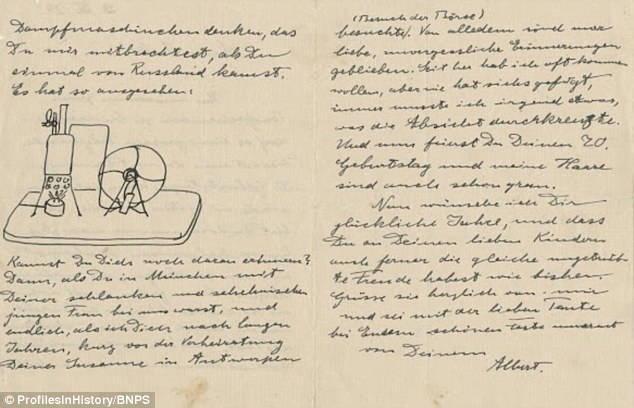 Dampfmaschinchen denken, das
Du mir mitbrachtest, als Du
einmal von Russland kamst.
Es hat so ausgesehen:
Kannst Du Dich noch daran erinnern?
Dann, als Du in München mit
Deiner schlanken und schelmischen
jungen Frau bei uns warst, und
endlich, als ich Dich nach langen
Jahren, kurz vor der Verheiratung
Deiner Susanne in Antwerpen
(Besuch der Börse)
besuchte. Von alledem sind mir
liebe, unvergessliche Erinnerungen
geblieben. Seither hab ich oft kommen
wollen, aber nie hat sichs gefügt,
immer musste ich irgend etwas,
was die Absicht durchkreuzte.
Und nun feierst Du Deinen 70.
Geburtstag und meine Haare
sind auch schon grau.
Nun wünsche ich Dir
glückliche Jahre, und dass
Du an Deinen lieben Kindern
auch ferner die gleiche ungetrüb-
te Freude habest wie bisher.
Grüsse sie herzlich von mir
und sei mit der lieben Tante
bei Euerm schönen Feste umarmt
von Deinem
Albert.
© ProfilesInHistory/BNPS